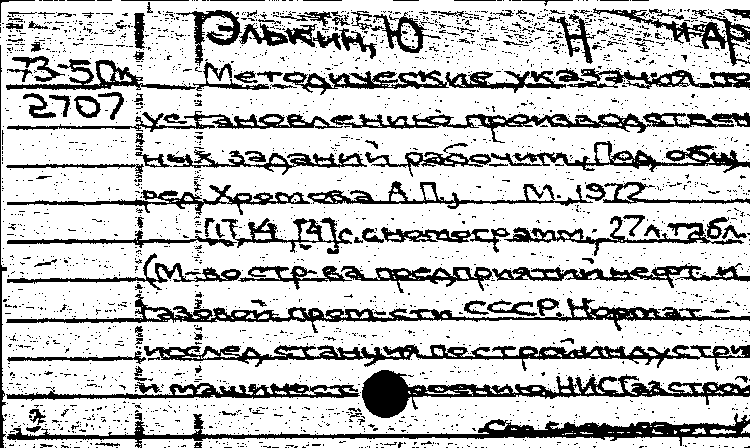 Элькин, Ю Н и др
73-50к Методические указания по
2707 установлению производствен
ных заданий рабочим, Под общ
ред Хромова А.П., М., 1972
[1], 14, [4] с. с номограмм.; 27 л. табл.
(М-во стр-ва предприятий нефт. и
газовой пром-сти СССР. Нормат -
исслед, станция по стройиндустри
и машиност роению, НИС Газстрой